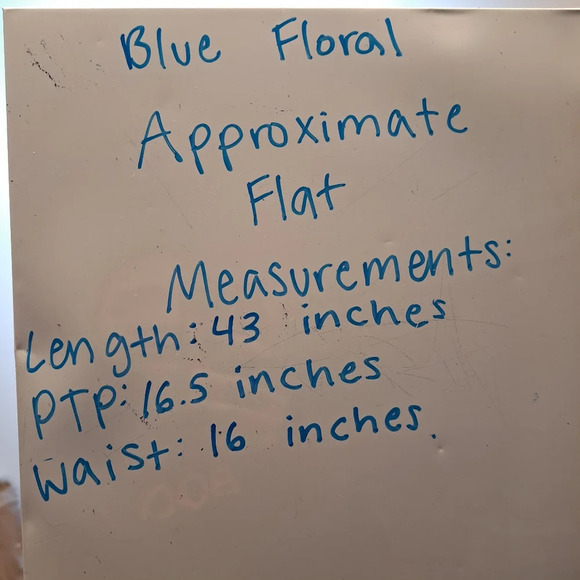 Blue Floral
Approximate
Flat
Measurements:
Length: 43 inches
PTP: 16.5 inches
Waist: 16 inches.